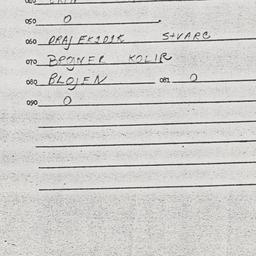 050 O
060 DRAJ EKSOIR STVARC
070 BROJNER KOLIR
080 BLOJEN 081 O
090 O